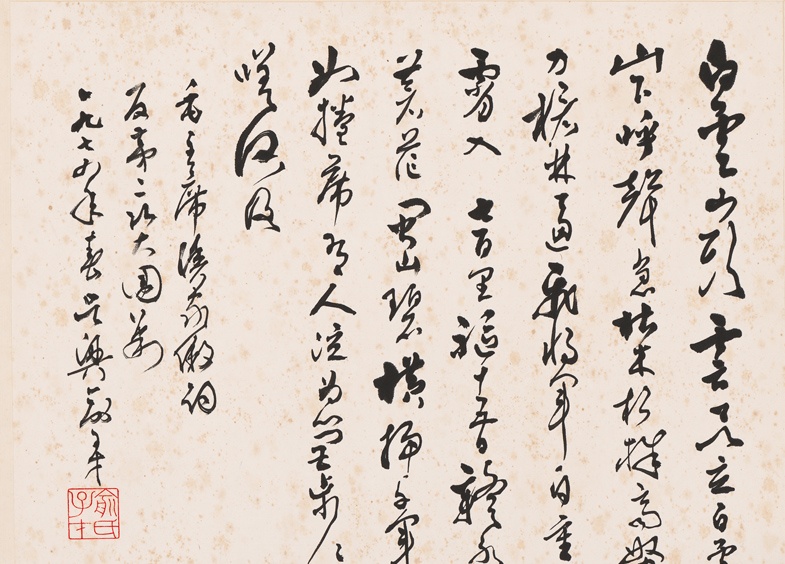 白雲山頭雲欲立白雲
山下呼聲急枯木朽株齊努
力槍林逼飛將軍自重
霄入 七百里驅十五日贛水
蒼茫閩山碧橫掃千軍
如捲席有人泣為營步步
嗟何及
毛主席漁家傲詞
反第二次大圍剿
一九七年春吳興俞子才
俞氏子才